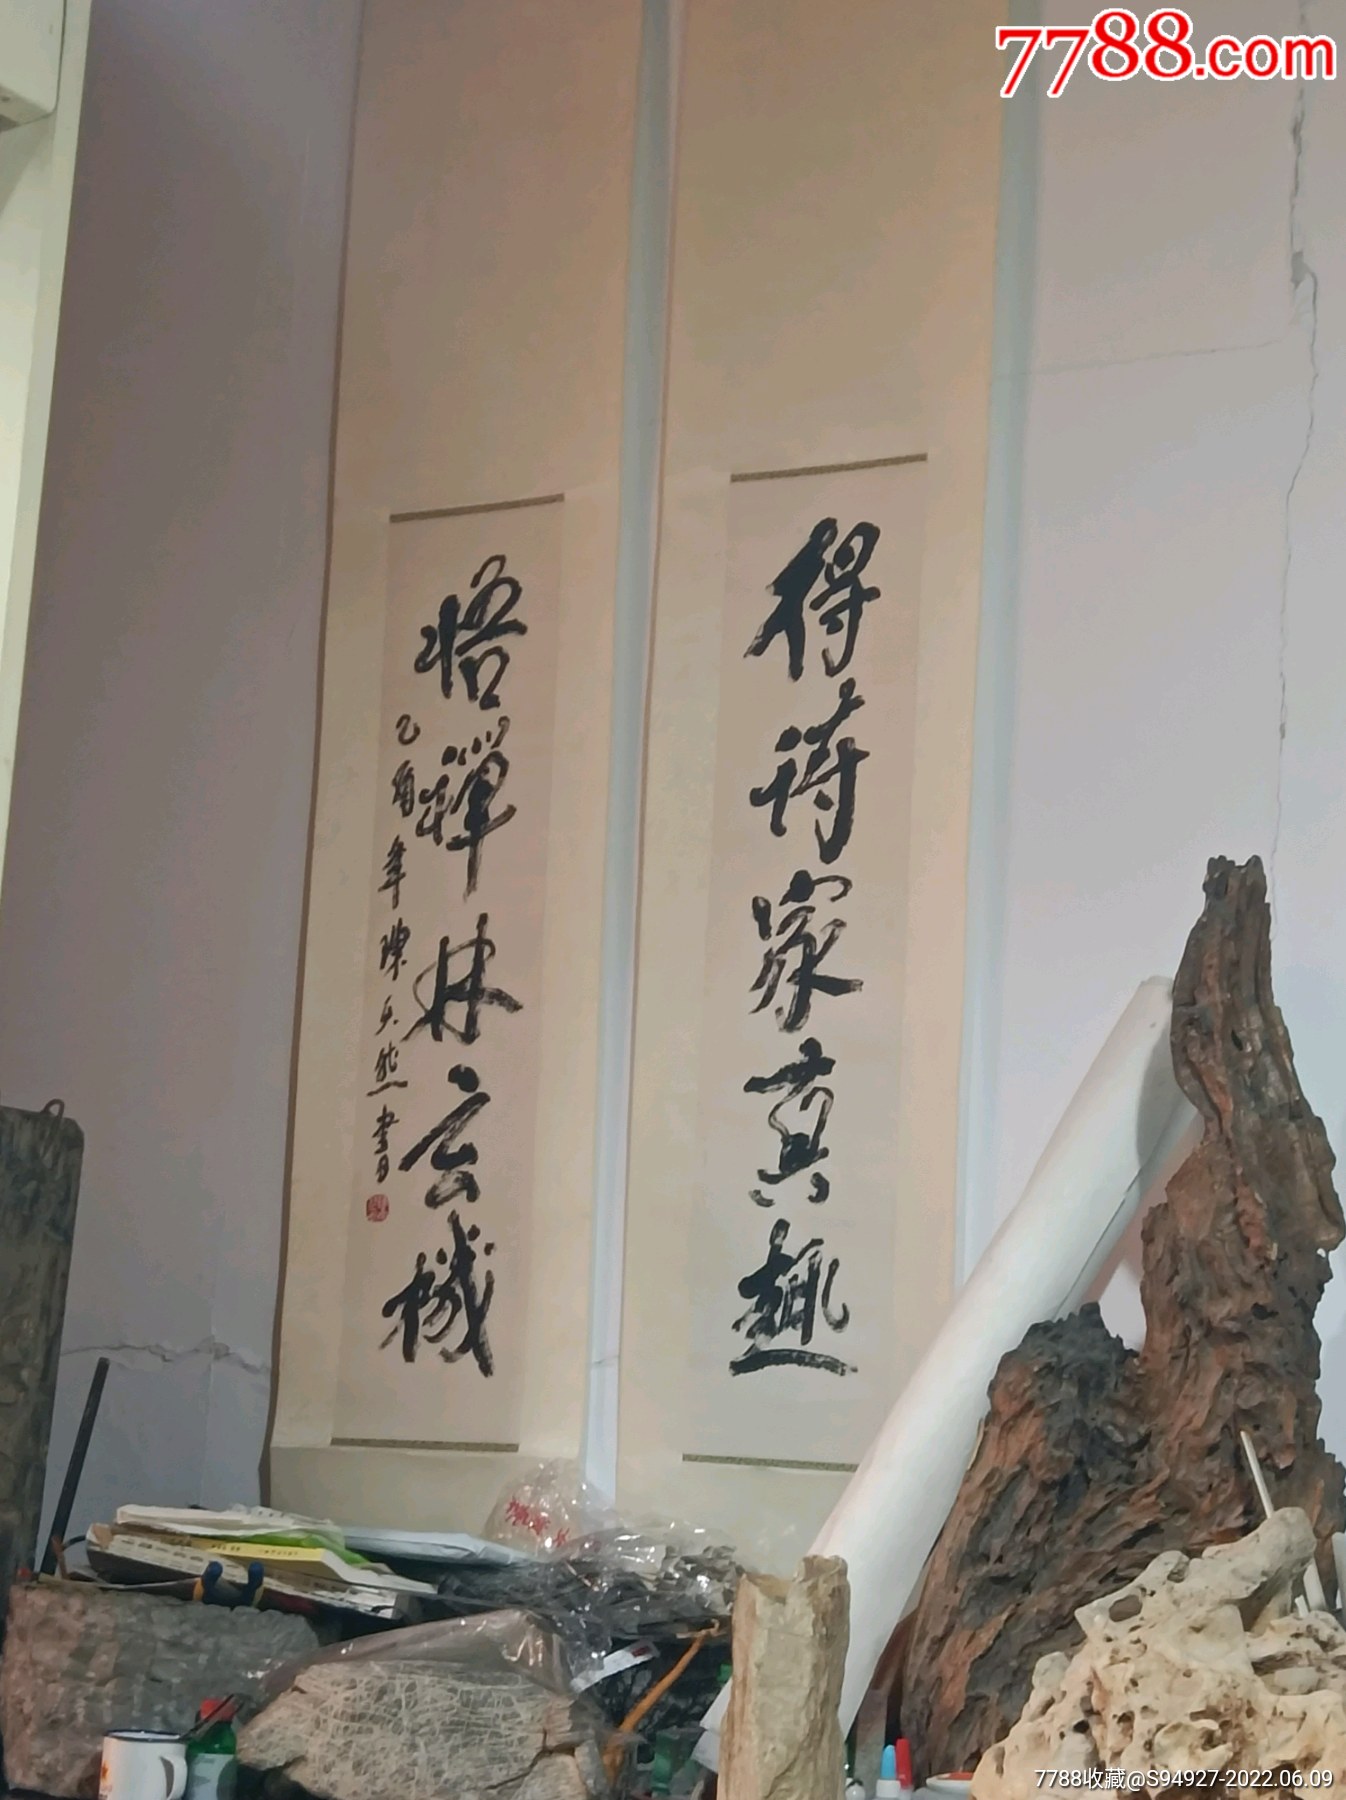 7788.com
得诗家真趣
悟禅林玄机
乙酉年陈天然书
7788收藏@S94927-2022.06.09